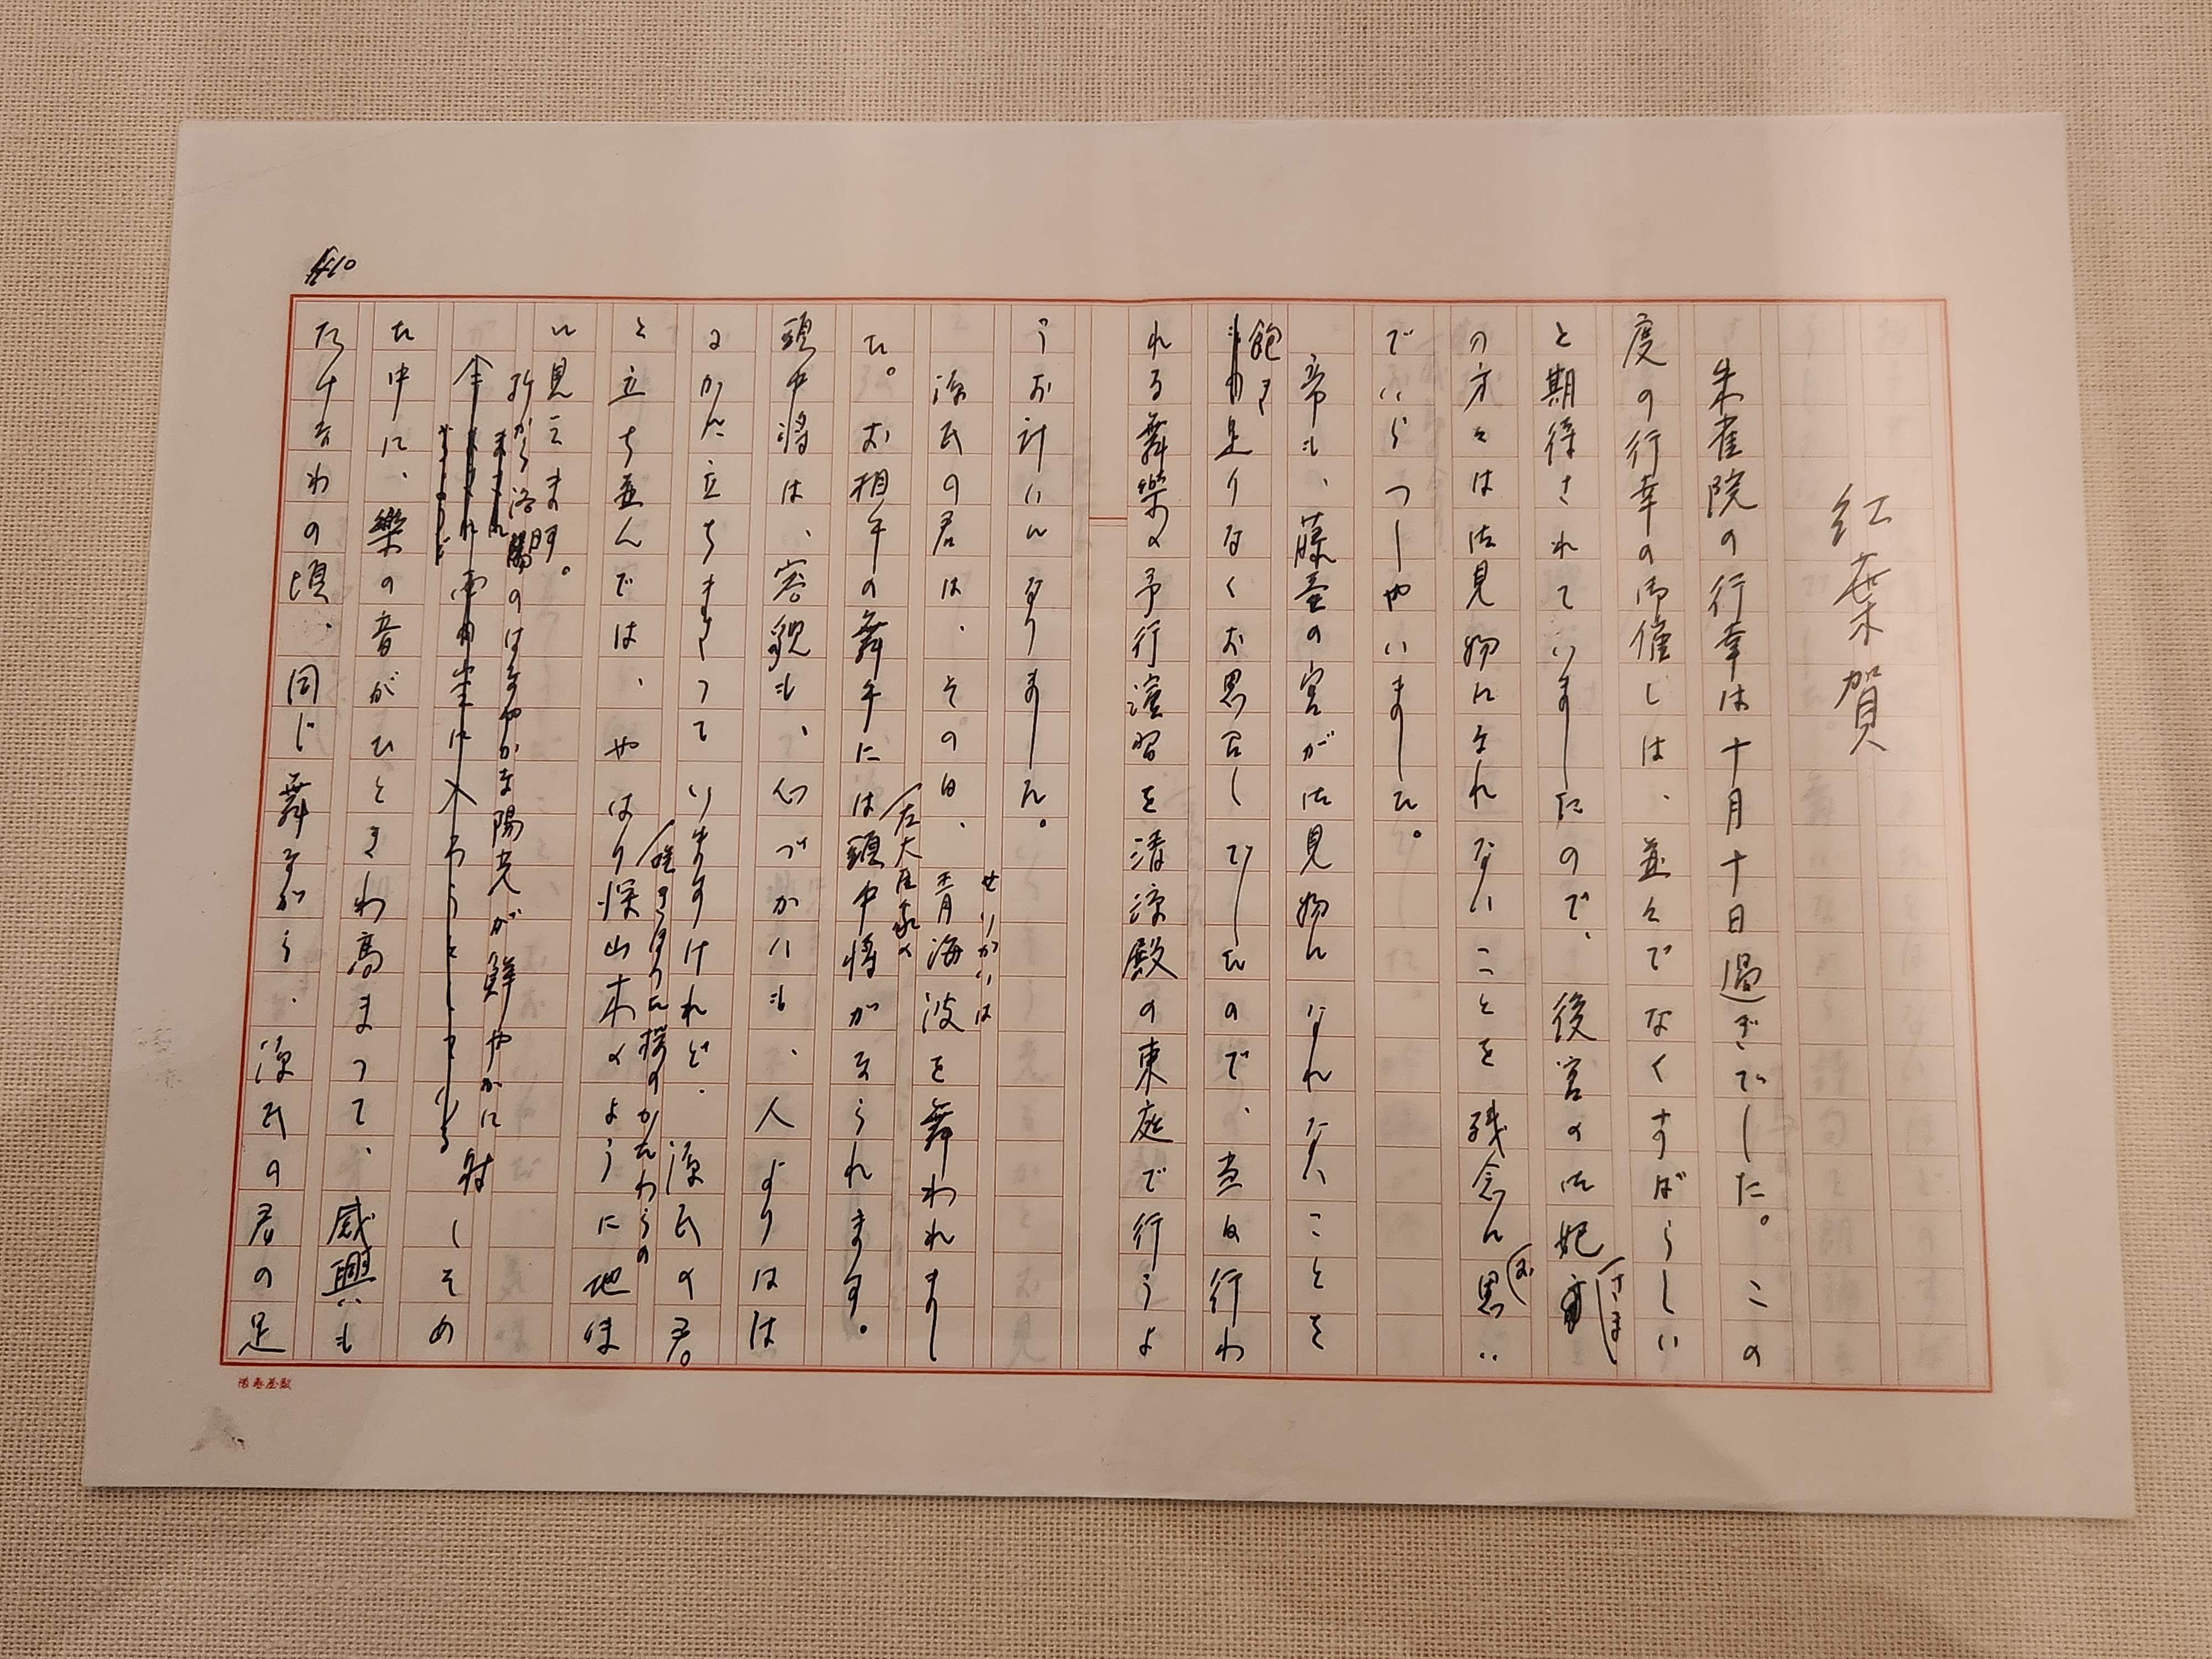 紅葉賀
朱雀院の行幸は十月十日過ぎでした。この
度の行幸の御催しは、並々でなくすばらしい
と期待されていましたので、後宮の御妃さま
の方々は御見物になれないことを残念にお思い
でいらっしゃいました。
帝も、藤壺の宮が御見物になれないことを
飽き足りなくお思召しでしたので、当日行わ
れる舞楽の予行演習を清涼殿の東庭で行うよ
うお計いになりました。
源氏の君は、その日、青海波を舞われまし
せいがいは
た。お相手の舞手には頭中将がなられます。
左大臣家の
頭中将は、容貌も、心づかいも、人よりはは
るかに立ちまさっていますけれど、源氏の君
と立ち並んでは、やはり深山木のように地味
咲きほこった桜のかたわらの
に見えます。
折から落陽のはなやかな陽光が鮮やかに射しそめ
た中に、楽の音がひときわ高まって、感興も
たけなわの頃、同じ舞ながら、源氏の君の足